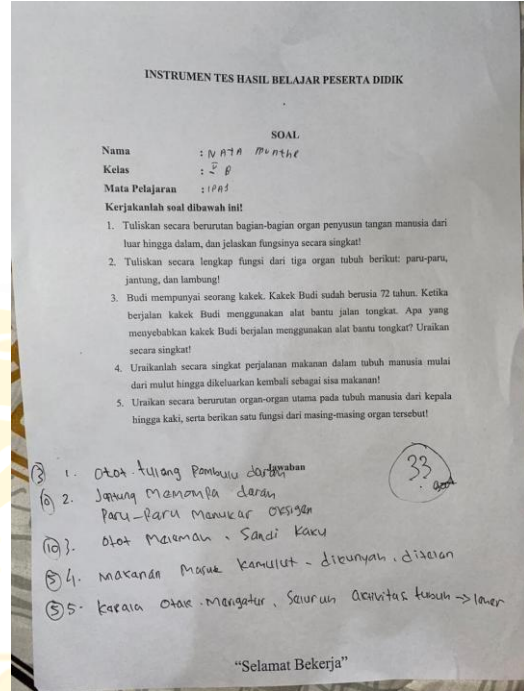 INSTRUMEN TES HASIL BELAJAR PESERTA DIDIK
SOAL
Nama : NATA Munthe
Kelas : V B
Mata Pelajaran : IPAS
Kerjakanlah soal dibawah ini!
1. Tuliskan secara berurutan bagian-bagian organ penyusun tangan manusia dari
luar hingga dalam, dan jelaskan fungsinya secara singkat!
2. Tuliskan secara lengkap fungsi dari tiga organ tubuh berikut: paru-paru,
jantung, dan lambung!
3. Budi mempunyai seorang kakek. Kakek Budi sudah berusia 72 tahun. Ketika
berjalan kakek Budi menggunakan alat bantu jalan tongkat. Apa yang
menyebabkan kakek Budi berjalan menggunakan alat bantu tongkat? Uraikan
secara singkat!
4. Uraikanlah secara singkat perjalanan makanan dalam tubuh manusia mulai
dari mulut hingga dikeluarkan kembali sebagai sisa makanan!
5. Uraikan secara berurutan organ-organ utama pada tubuh manusia dari kepala
hingga kaki, serta berikan satu fungsi dari masing-masing organ tersebut!
Jawaban
33
3 1. Otot tulang Pambulu darah
10 2. Jantung Memompa darah
Paru-Paru Manukar Oksigen
10 3. Otot Malemah, Sandi Kaku
5 4. Makanan Masuk Kamulut - dikunyah, ditelan
5 5. Kapala Otak Mangatur, Saluruh aktivitas tubuh ->
"Selamat Bekerja"